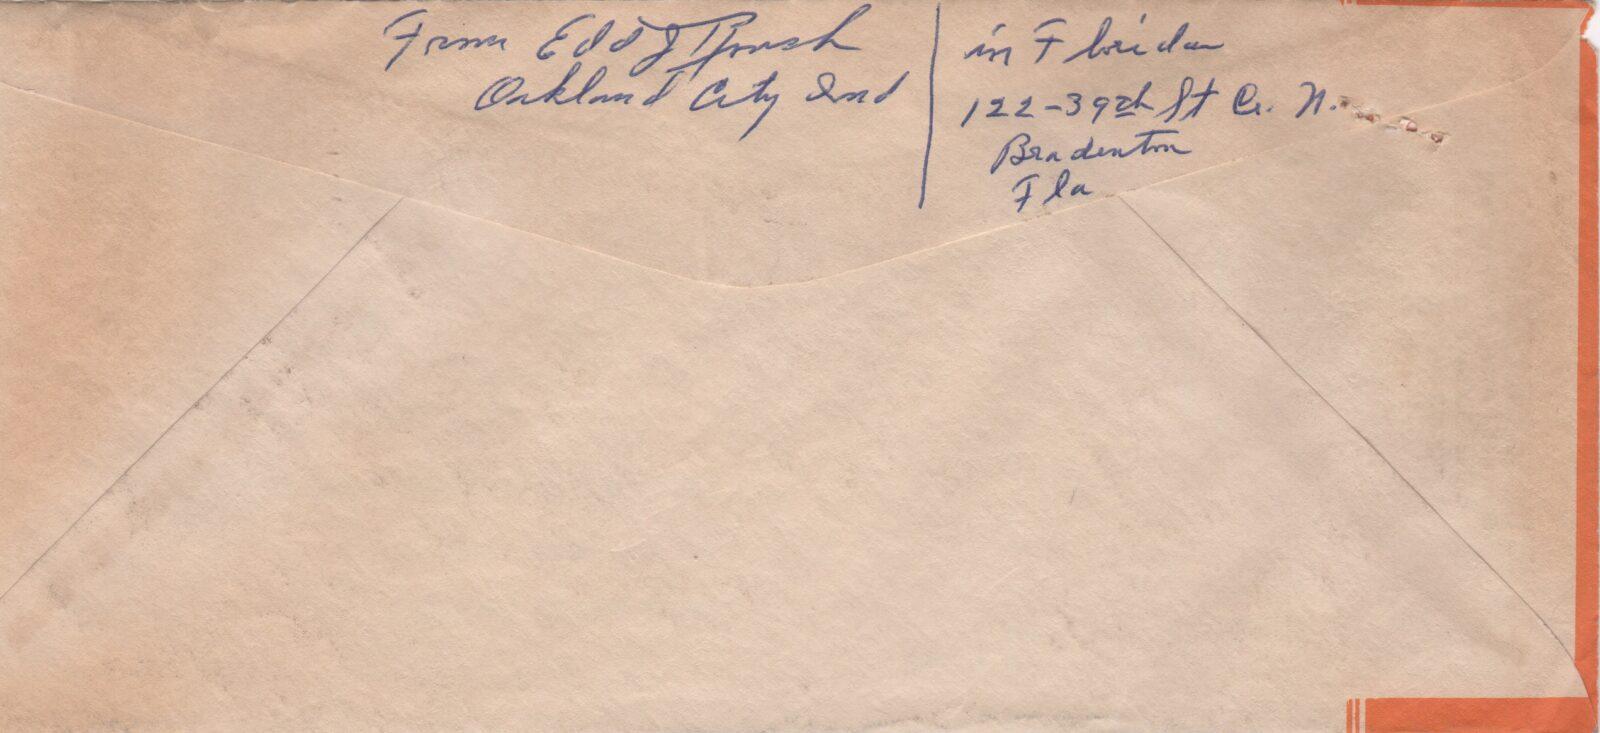 From Edd J Roush
Oakland City Ind
in Florida
122-39th St Cr. N.
Bradenton
Fla